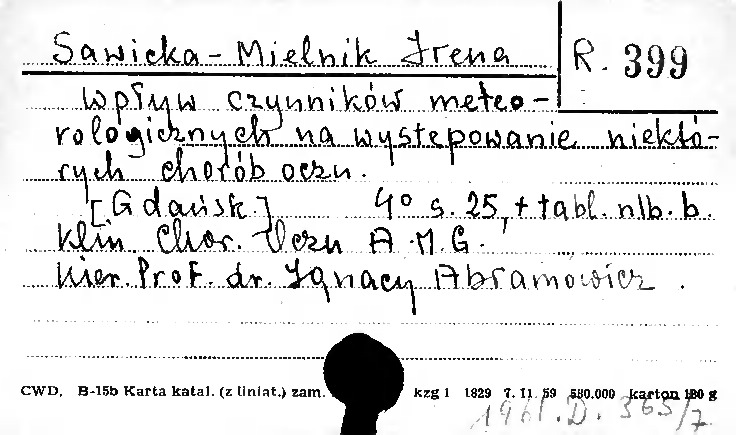 Sawicka-Mielnik Irena
R. 399
Wpływ czynników meteo-
rologicznych na występowanie niektó-
rych chorób oczu.
[Gdańsk.] 4° s. 25, + tabl. nlb. b.
Klin. Chor. Oczu A.M.G.
Kier. Prof. dr. Ignacy Abramowicz.
CWD, B-15b Karta katal. (z liniat.) zam. kzg 1 1829 7. II. 59 580.000 karton 180 g
1961.D. 365/7